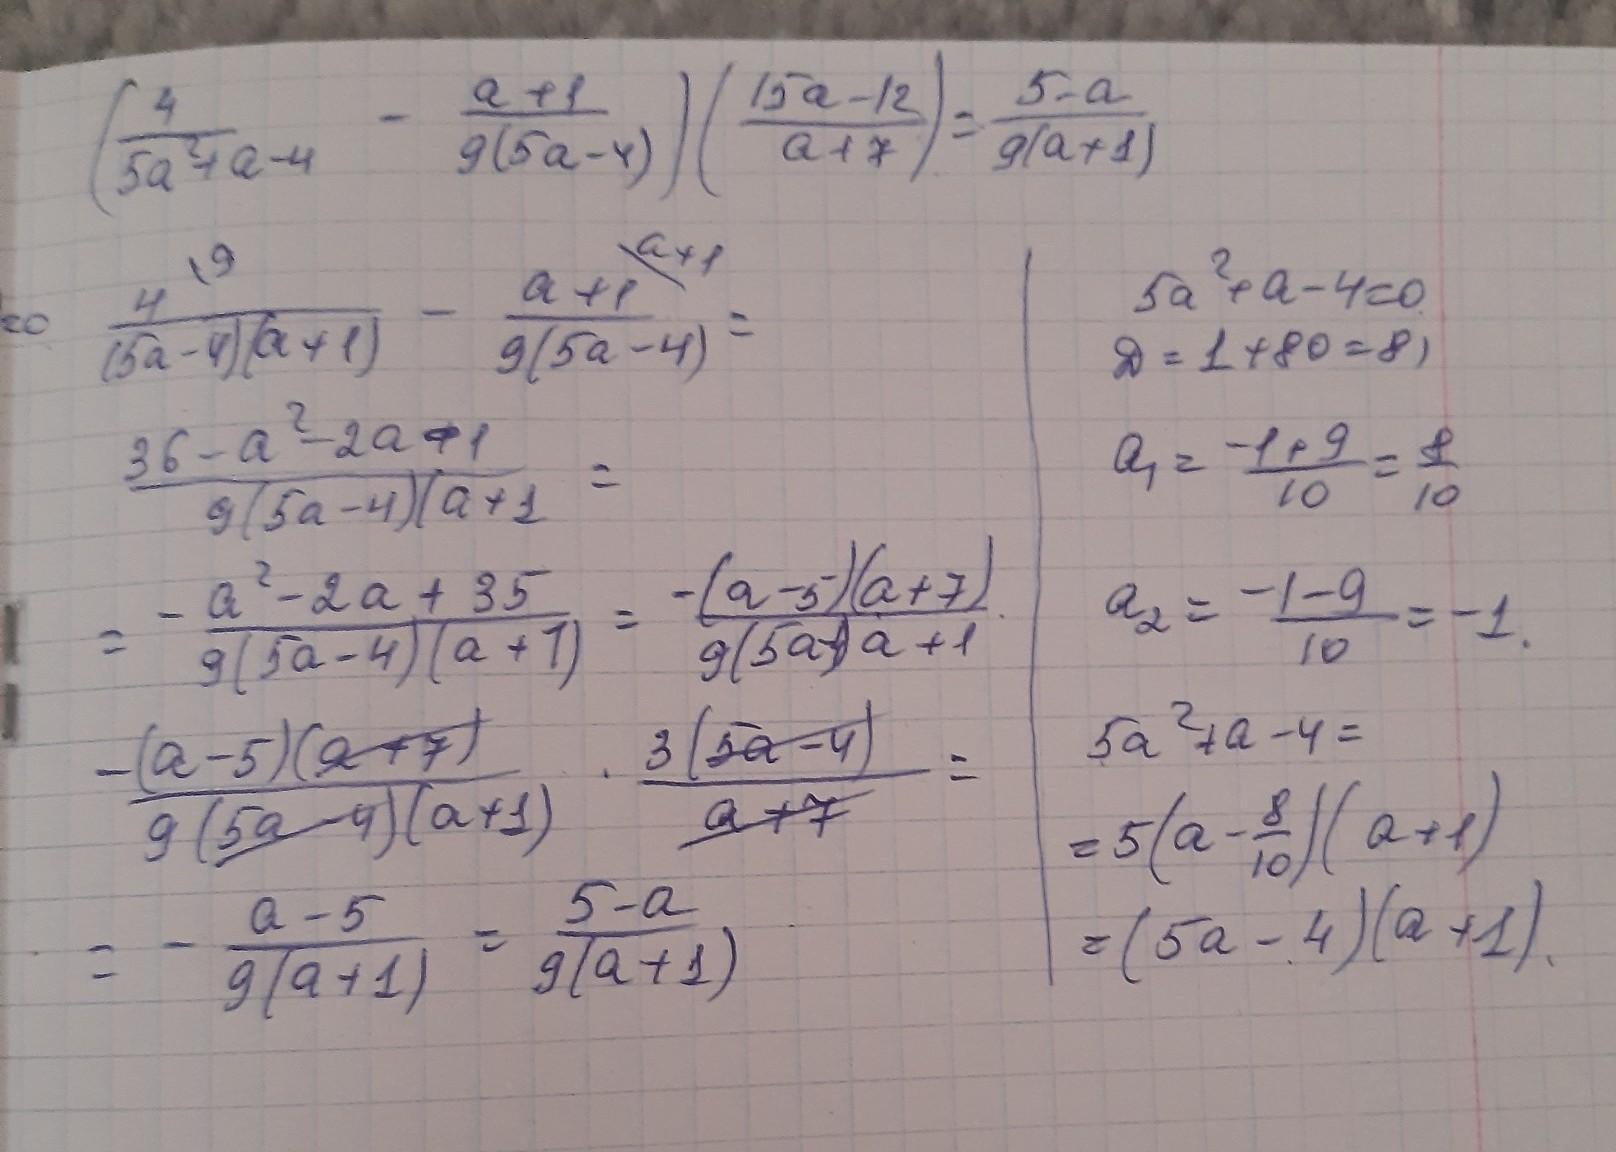 (4/(5a²+a-4) - (a+1)/(9(5a-4)))((15a-12)/(a+7)) = (5-a)/(9(a+1))
4\9/((5a-4)(a+1)) - (a+1)\a+1/(9(5a-4)) =
(36-a²-2a-1)/(9(5a-4)(a+1 =
= (-a²-2a+35)/(9(5a-4)(a+1)) = (-(a-5)(a+7))/(9(5a-4)a+1 .
(-(a-5)(a+7))/(9(5a-4)(a+1)) · (3(5a-4))/(a+7) =
= - (a-5)/(9(a+1)) = (5-a)/(9(a+1))
5a²+a-4=0
D=1+80=81
a₁ = (-1+9)/10 = 8/10
a₂ = (-1-9)/10 = -1.
5a²+a-4=
=5(a-8/10)(a+1)
=(5a-4)(a+1).